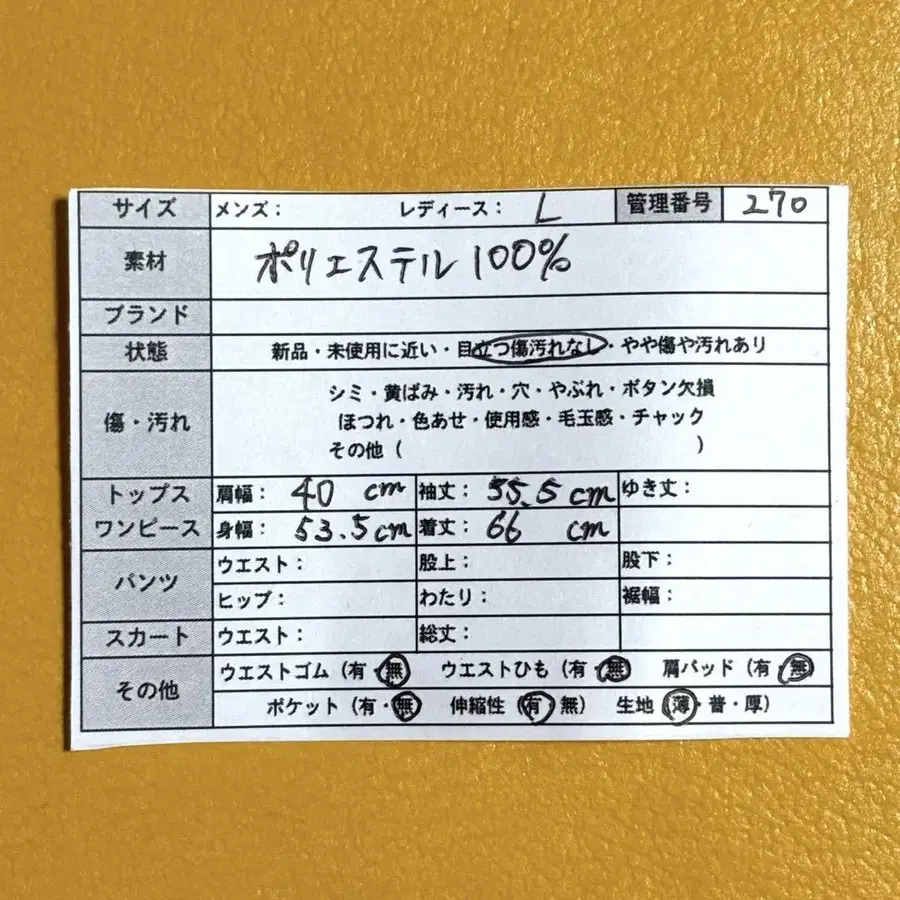 サイズ メンズ： レディース： L 管理番号 270
素材 ポリエステル 100%
ブランド
状態 新品・未使用に近い・目立つ傷汚れなし・やや傷や汚れあり
傷・汚れ シミ・黄ばみ・汚れ・穴・やぶれ・ボタン欠損
ほつれ・色あせ・使用感・毛玉感・チャック
その他（ ）
トップス 肩幅： 40 cm 袖丈： 55.5 cm ゆき丈：
ワンピース 身幅： 53.5cm 着丈： 66 cm
パンツ ウエスト： 股上： 股下：
ヒップ： わたり： 裾幅：
スカート ウエスト： 総丈：
その他 ウエストゴム（有・無） ウエストひも（有・無） 肩パッド（有・無）
ポケット（有・無） 伸縮性（有・無） 生地（薄・普・厚）